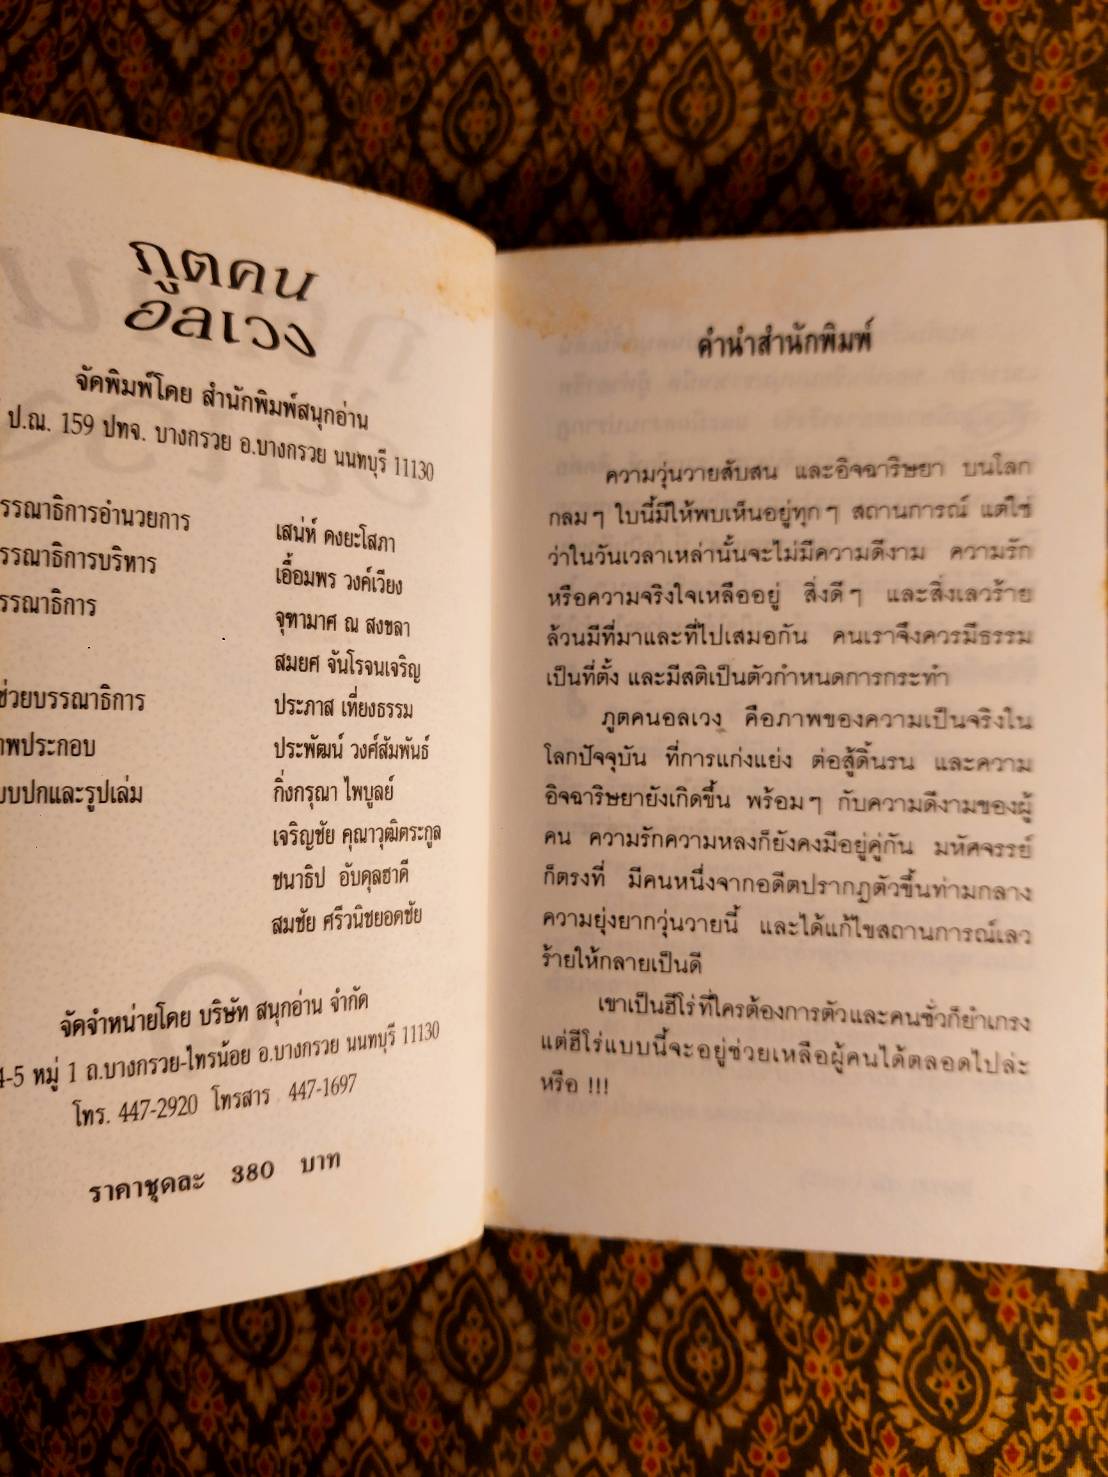 ภูตคน
อลเวง
จัดพิมพ์โดย สำนักพิมพ์สนุกอ่าน
ป.ณ. 159 ปทจ. บางกรวย อ.บางกรวย นนทบุรี 11130
รรณาธิการอำนวยการ เสน่ห์ ดงยะโสภา
รรณาธิการบริหาร เอื้อมพร วงค์เวียง
รรณาธิการ จุฑามาศ ณ สงขลา
สมยศ จันโรจนเจริญ
ช่วยบรรณาธิการ ประภาส เที่ยงธรรม
าพประกอบ ประพัฒน์ วงศ์สัมพันธ์
บบปกและรูปเล่ม กิ่งกรุณา ไพบูลย์
เจริญชัย คุณาวุฒิตระกูล
ชนาธิป อับดุลฮาดี
สมชัย ศรีวนิชยอดชัย
จัดจำหน่ายโดย บริษัท สนุกอ่าน จำกัด
4-5 หมู่ 1 ถ.บางกรวย-ไทรน้อย อ.บางกรวย นนทบุรี 11130
โทร. 447-2920 โทรสาร 447-1697
ราคาชุดละ 380 บาท
คำนำสำนักพิมพ์
ความวุ่นวายสับสน และอิจฉาริษยา บนโลก
กลมๆ ใบนี้มีให้พบเห็นอยู่ทุกๆ สถานการณ์ แต่ใช่
ว่าในวันเวลาเหล่านั้นจะไม่มีความดีงาม ความรัก
หรือความจริงใจเหลืออยู่ สิ่งดีๆ และสิ่งเลวร้าย
ล้วนมีที่มาและที่ไปเสมอกัน คนเราจึงควรมีธรรม
เป็นที่ตั้ง และมีสติเป็นตัวกำหนดการกระทำ
ภูตคนอลเวง คือภาพของความเป็นจริงใน
โลกปัจจุบัน ที่การแก่งแย่ง ต่อสู้ดิ้นรน และความ
อิจฉาริษยายังเกิดขึ้น พร้อมๆ กับความดีงามของผู้
คน ความรักความหลงก็ยังคงมีอยู่คู่กัน มหัศจรรย์
ก็ตรงที่ มีคนหนึ่งจากอดีตปรากฏตัวขึ้นท่ามกลาง
ความยุ่งยากวุ่นวายนี้ และได้แก้ไขสถานการณ์เลว
ร้ายให้กลายเป็นดี
เขาเป็นฮีโร่ที่ใครต้องการตัวและคนชั่วก็ยำเกรง
แต่ฮีโร่แบบนี้จะอยู่ช่วยเหลือผู้คนได้ตลอดไปล่ะ
หรือ !!!